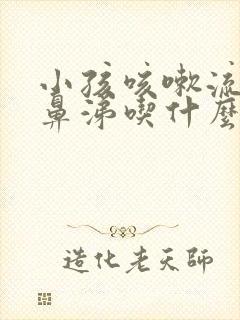 小孩咳嗽流
鼻涕喫什麼
造化老天師